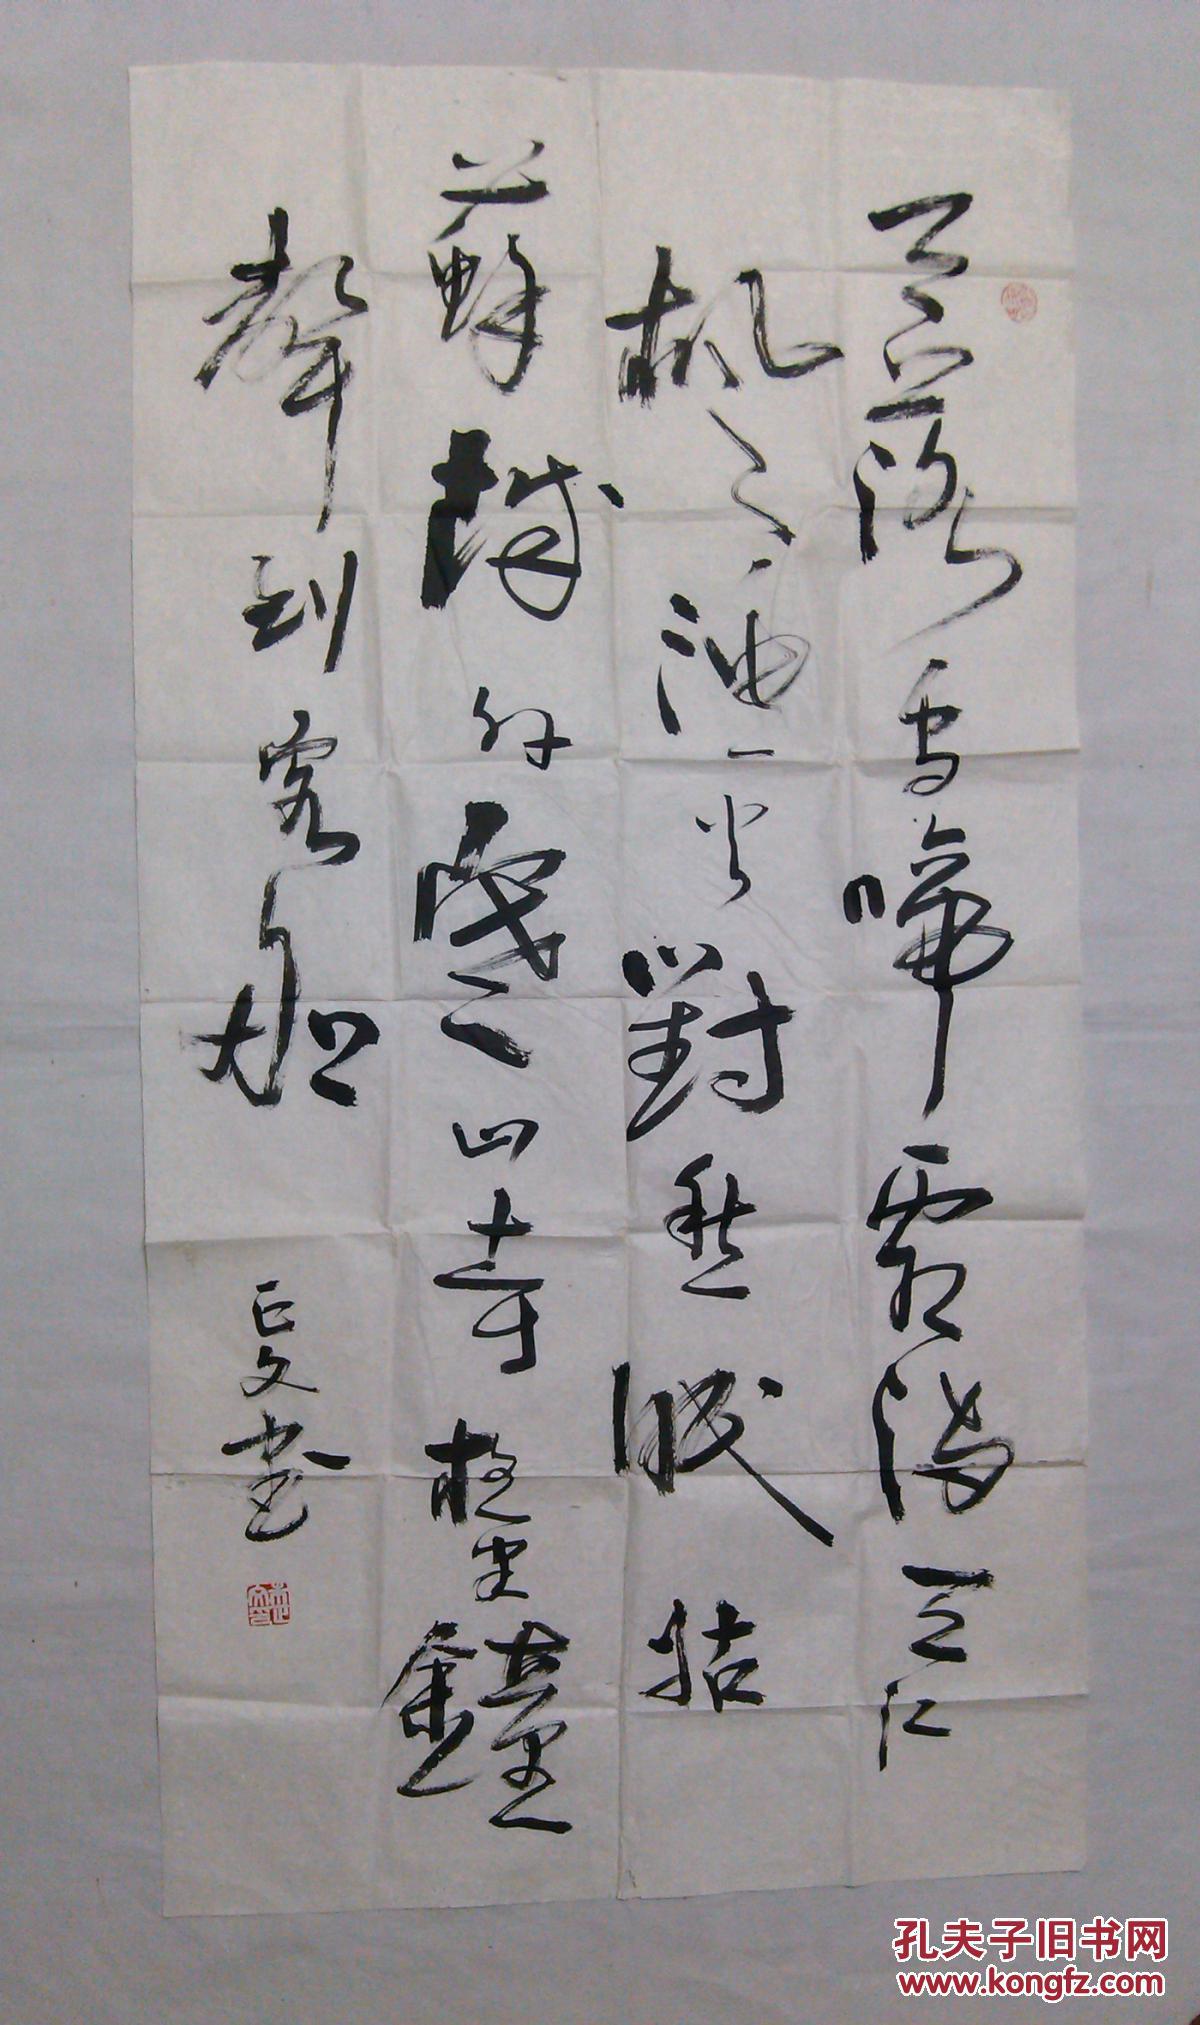 月落烏啼霜滿天江
楓漁火對愁眠姑
蘇城外寒山寺夜半鐘
聲到客船
文書
孔夫子旧书网
www.kongfz.com